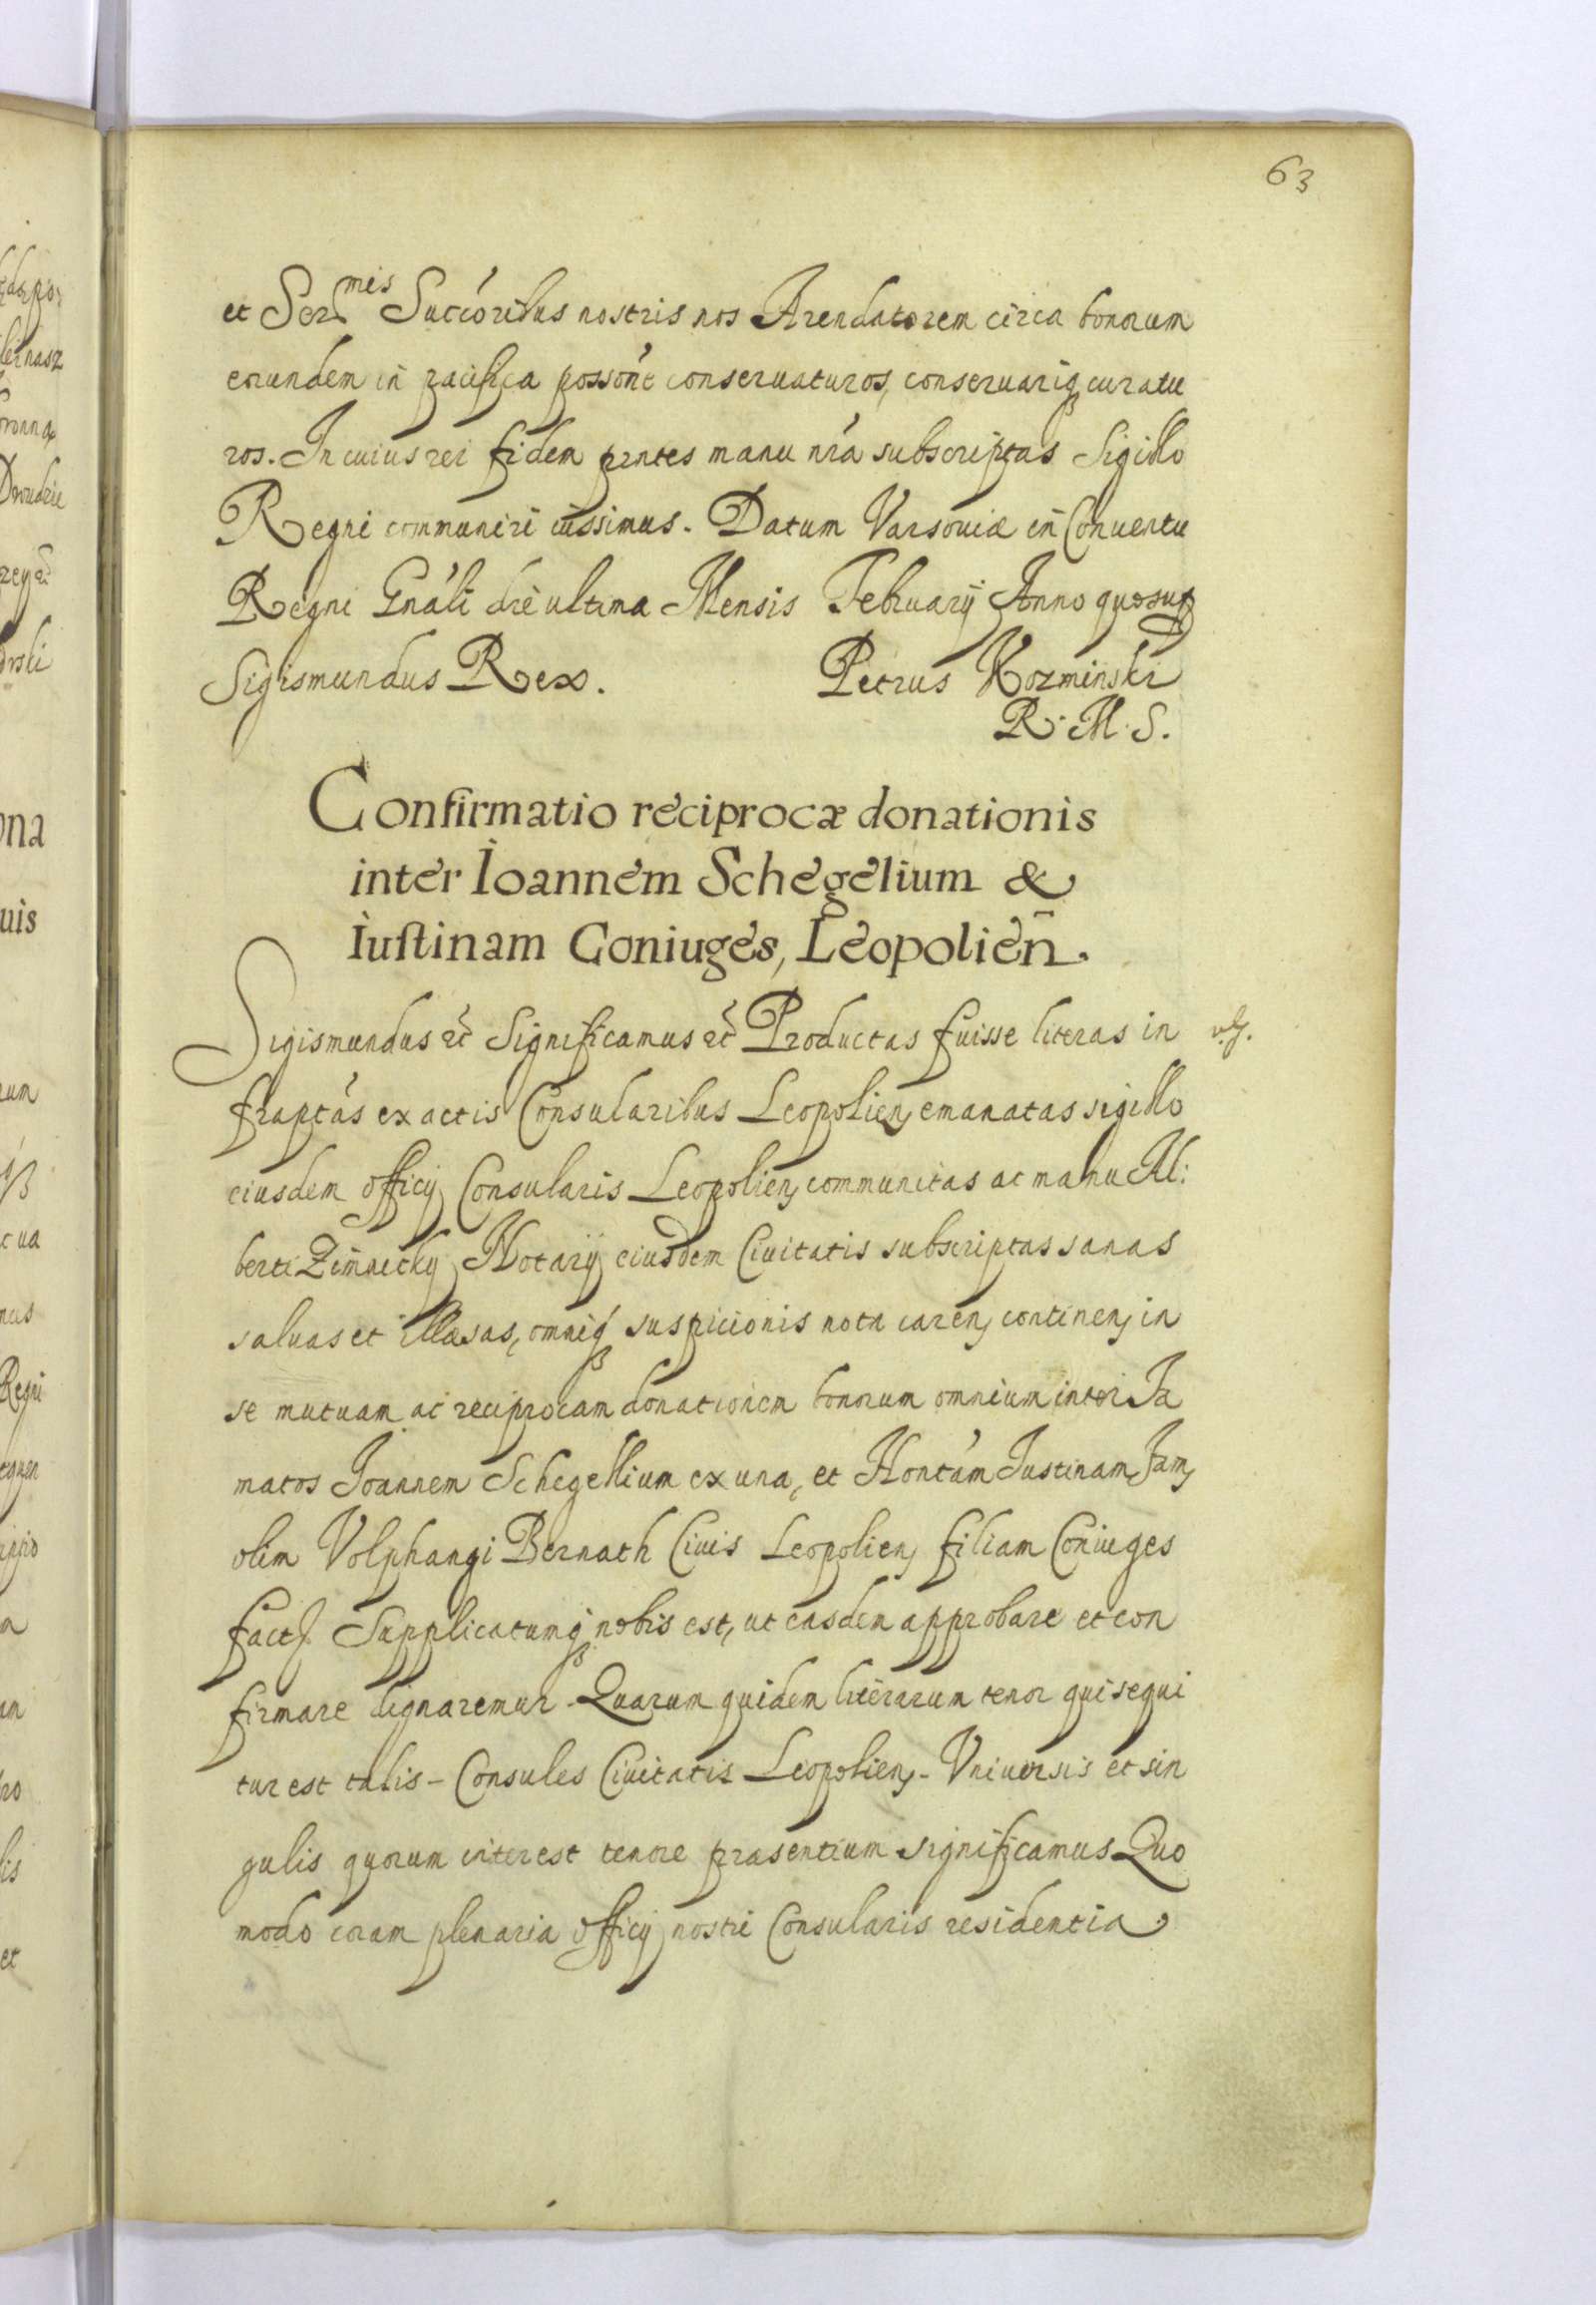 63
et Ser^mis Succóribus nostris nos Arendatorem circa bonorum
eorundem in pacifica possóne conseruaturos, conseruariq curatu
ros. In cuius rei fidem pntes manu nrá subscriptas Sigillo
Regni communiri iussimus. Datum Varsouiæ in Conuentu
Regni Gnáli die ultima Mensis February Anno quo sup
Sigismundus Rex. Petrus Kozminski
R. M. S.
Confirmatio reciprocæ donationis
inter Ioannem Schegelium &
Iustinam Coniuges, Leopolien̄.
Sigismundus etc Significamus etc Productas fuisse literas in
fraptás ex actis Consularibus Leopolien, emanatas sigillo
eiusdem officij Consularis Leopolien, communitas ac manu Al:
berti Zimnicky Notarij eiusdem Ciuitatis subscriptas sanas
saluas et illæsas, omniq suspicionis nota caren, continen, in
se mutuam ac reciprocam donationem bonorum omnium inter Fa
matos Joannem Schegellium ex una, et Hontám Justinam Fam,
olim Volphangi Bernath Ciuis Leopolien, filiam Coniuges
fact. Supplicatumq nobis est, ut easdem approbare et con
firmare dignaremur. Quarum quidem literarum tenor qui sequi
tur est talis - Consules Ciuitatis Leopolien, - Vniuersis et sin
gulis quorum interest tenore præsentium significamus Quo
modo coram plenaria officij nostri Consularis residentia